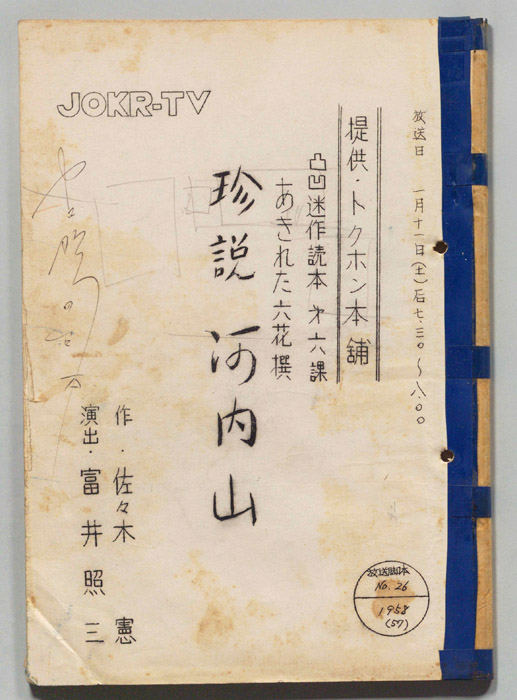 JOKR-TV
放送日 一月十一日(土)后七.三〇〜八.〇〇
提供・トクホン本舗
凸凹迷作読本 才六課
あきれた六花撰
珍説 河内山
作・佐々木 憲
演出・富井照三
放送脚本
No. 26
1958
(57)